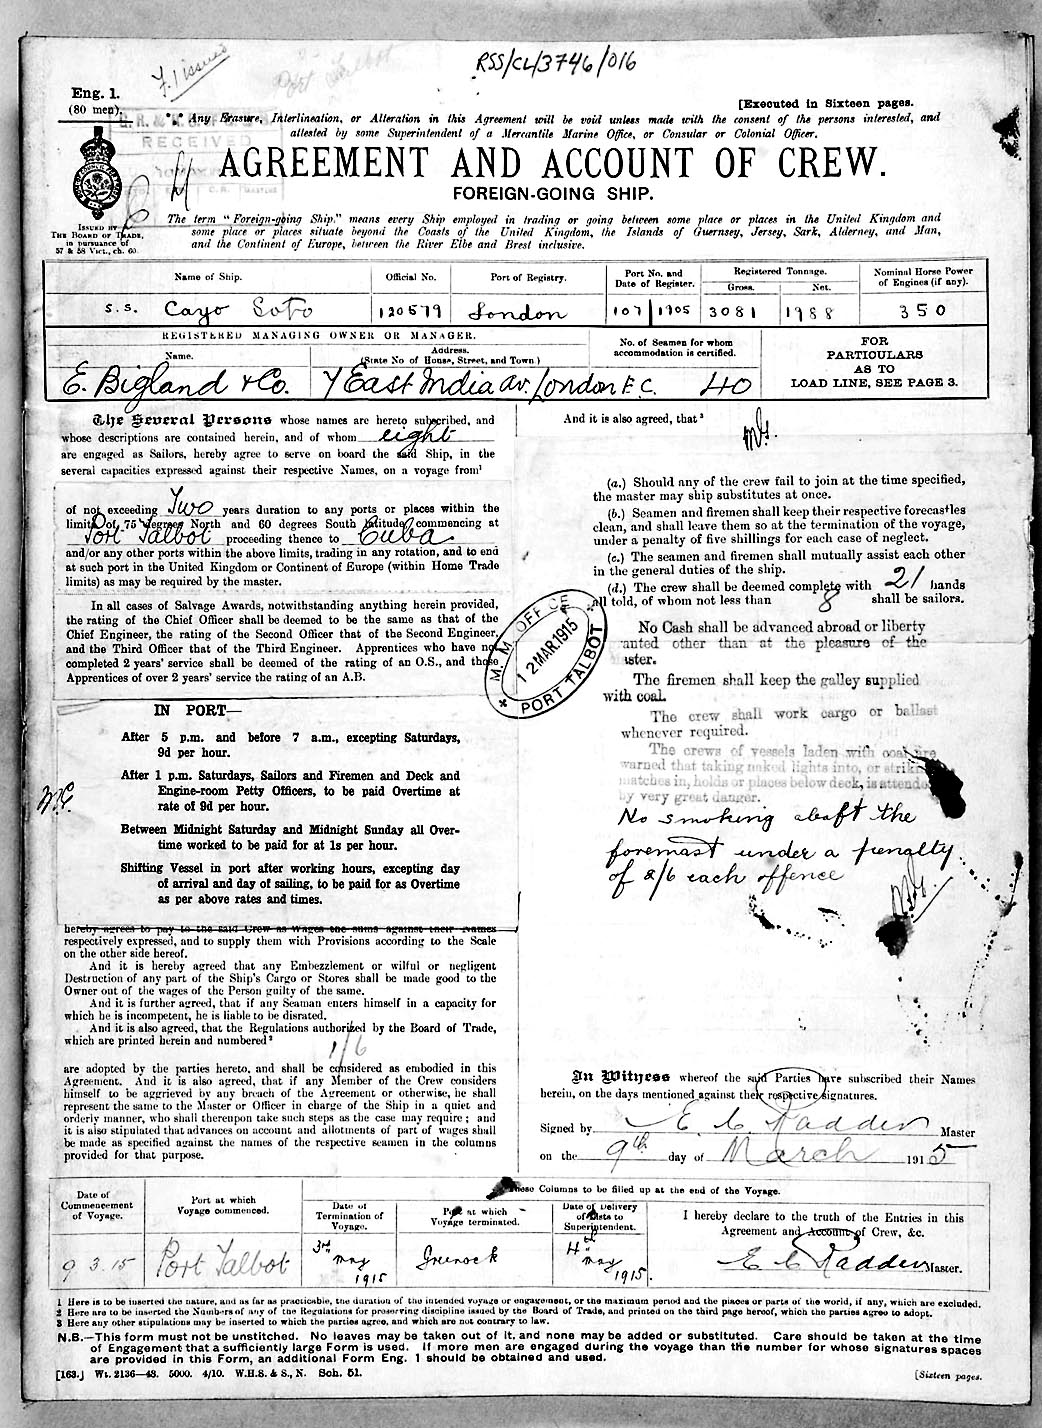 RSS/CL/3746/016
F.1 issued
Port Talbot
Eng. 1.
(80 men).
[Executed in Sixteen pages.
RECEIVED
*** Any Erasure, Interlineation, or Alteration in this Agreement will be void unless made with the consent of the persons interested, and
attested by some Superintendent of a Mercantile Marine Office, or Consular or Colonial Officer.
AGREEMENT AND ACCOUNT OF CREW.
FOREIGN-GOING SHIP.
ISSUED BY
THE BOARD OF TRADE,
in pursuance of
57 & 58 Vict., ch. 60.
The term "Foreign-going Ship," means every Ship employed in trading or going between some place or places in the United Kingdom and
some place or places situate beyond the Coasts of the United Kingdom, the Islands of Guernsey, Jersey, Sark, Alderney, and Man,
and the Continent of Europe, between the River Elbe and Brest inclusive.
Name of Ship. Official No. Port of Registry. Port No. and Date of Register. Registered Tonnage. Gross. Net. Nominal Horse Power of Engines (if any).
S.S. Cayo Soto 120579 London 107/1905 3081 1988 350
REGISTERED MANAGING OWNER OR MANAGER.
Name. Address. (State No of House, Street, and Town.)
No. of Seamen for whom accommodation is certified.
FOR
PARTICULARS
AS TO
LOAD LINE, SEE PAGE 3.
E. Bigland & Co. 7 East India Av. London E.C. 40
The Several Persons whose names are hereto subscribed, and
whose descriptions are contained herein, and of whom eight
are engaged as Sailors, hereby agree to serve on board the said Ship, in the
several capacities expressed against their respective Names, on a voyage from¹
of not exceeding Two years duration to any ports or places within the
limits of 75 degrees North and 60 degrees South latitude, commencing at
Port Talbot proceeding thence to Cuba
and/or any other ports within the above limits, trading in any rotation, and to end
at such port in the United Kingdom or Continent of Europe (within Home Trade
limits) as may be required by the master.
In all cases of Salvage Awards, notwithstanding anything herein provided,
the rating of the Chief Officer shall be deemed to be the same as that of the
Chief Engineer, the rating of the Second Officer that of the Second Engineer,
and the Third Officer that of the Third Engineer. Apprentices who have not
completed 2 years' service shall be deemed of the rating of an O.S., and those
Apprentices of over 2 years' service the rating of an A.B.
IN PORT—
After 5 p.m. and before 7 a.m., excepting Saturdays,
9d per hour.
After 1 p.m. Saturdays, Sailors and Firemen and Deck and
Engine-room Petty Officers, to be paid Overtime at
rate of 9d per hour.
Between Midnight Saturday and Midnight Sunday all Over-
time worked to be paid for at 1s per hour.
Shifting Vessel in port after working hours, excepting day
of arrival and day of sailing, to be paid for as Overtime
as per above rates and times.
hereby agrees to pay to the said Crew as Wages the sums against their Names
respectively expressed, and to supply them with Provisions according to the Scale
on the other side hereof.
And it is hereby agreed that any Embezzlement or wilful or negligent
Destruction of any part of the Ship's Cargo or Stores shall be made good to the
Owner out of the wages of the Person guilty of the same.
And it is further agreed, that if any Seaman enters himself in a capacity for
which he is incompetent, he is liable to be disrated.
And it is also agreed, that the Regulations authorized by the Board of Trade,
which are printed herein and numbered²
1/6
are adopted by the parties hereto, and shall be considered as embodied in this
Agreement. And it is also agreed, that if any Member of the Crew considers
himself to be aggrieved by any breach of the Agreement or otherwise, he shall
represent the same to the Master or Officer in charge of the Ship in a quiet and
orderly manner, who shall thereupon take such steps as the case may require; and
it is also stipulated that advances on account and allotments of part of wages shall
be made as specified against the names of the respective seamen in the columns
provided for that purpose.
And it is also agreed, that³
(a.) Should any of the crew fail to join at the time specified,
the master may ship substitutes at once.
(b.) Seamen and firemen shall keep their respective forecastles
clean, and shall leave them so at the termination of the voyage,
under a penalty of five shillings for each case of neglect.
(c.) The seamen and firemen shall mutually assist each other
in the general duties of the ship.
(d.) The crew shall be deemed complete with 21 hands
all told, of whom not less than 8 shall be sailors.
M. M. OFFICE
12 MAR. 1915
PORT TALBOT
No Cash shall be advanced abroad or liberty
anted other than at the pleasure of the
ster.
The firemen shall keep the galley supplied
with coal.
The crew shall work cargo or ballast
whenever required.
The crews of vessels laden with coal are
warned that taking naked lights into, or striking
matches in, holds or places below deck, is attended
by very great danger.
No smoking abaft the
foremast under a penalty
of 2/6 each offence
In Witness whereof the said Parties have subscribed their Names
herein, on the days mentioned against their respective signatures.
Signed by E. C. Radden Master
on the 9th day of March 1915
These Columns to be filled up at the end of the Voyage.
Date of Commencement of Voyage. Port at which Voyage commenced. Date of Termination of Voyage. Port at which Voyage terminated. Date of Delivery of Lists to Superintendent.
I hereby declare to the truth of the Entries in this
Agreement and Account of Crew, &c.
9.3.15 Port Talbot 3rd May 1915 Greenock 4th May 1915.
E C Radden Master.
1 Here is to be inserted the nature, and as far as practicable, the duration of the intended voyage or engagement, or the maximum period and the places or parts of the world, if any, which are excluded.
2 Here are to be inserted the Numbers of any of the Regulations for preserving discipline issued by the Board of Trade, and printed on the third page hereof, which the parties agree to adopt.
3 Here any other stipulations may be inserted to which the parties agree, and which are not contrary to law.
N.B.—This form must not be unstitched. No leaves may be taken out of it, and none may be added or substituted. Care should be taken at the time
of Engagement that a sufficiently large Form is used. If more men are engaged during the voyage than the number for whose signatures spaces
are provided in this Form, an additional Form Eng. 1 should be obtained and used.
[163.] Wt. 2136—43. 5000. 4/10. W.H.S. & S., N. Sch. 51.
[Sixteen pages.